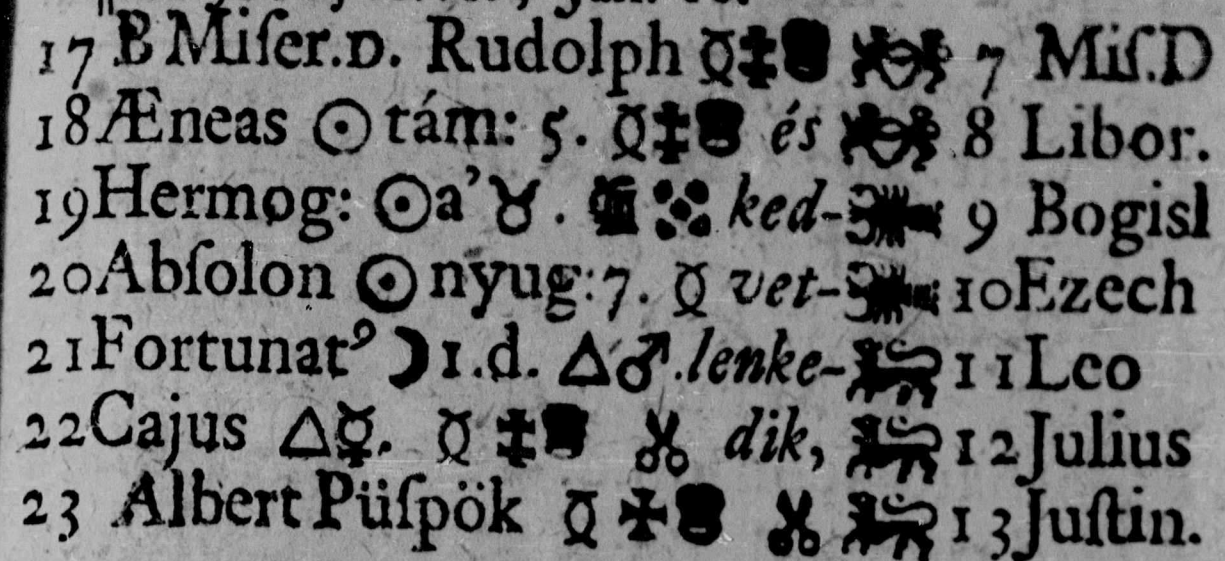 17 B Miſer.D. Rudolph 7 Miſ.D
18 Æneas ☉ tám: 5. és 8 Libor.
19 Hermog: ☉ a' ♉. ked- 9 Bogisl
20 Abſolon ☉ nyug: 7. vet- 10 Ezech
21 Fortunatꝰ ☽ 1.d. △ ♂. lenke- 11 Leo
22 Cajus △ ☿. dik, 12 Julius
23 Albert Püſpök 13 Juſtin.